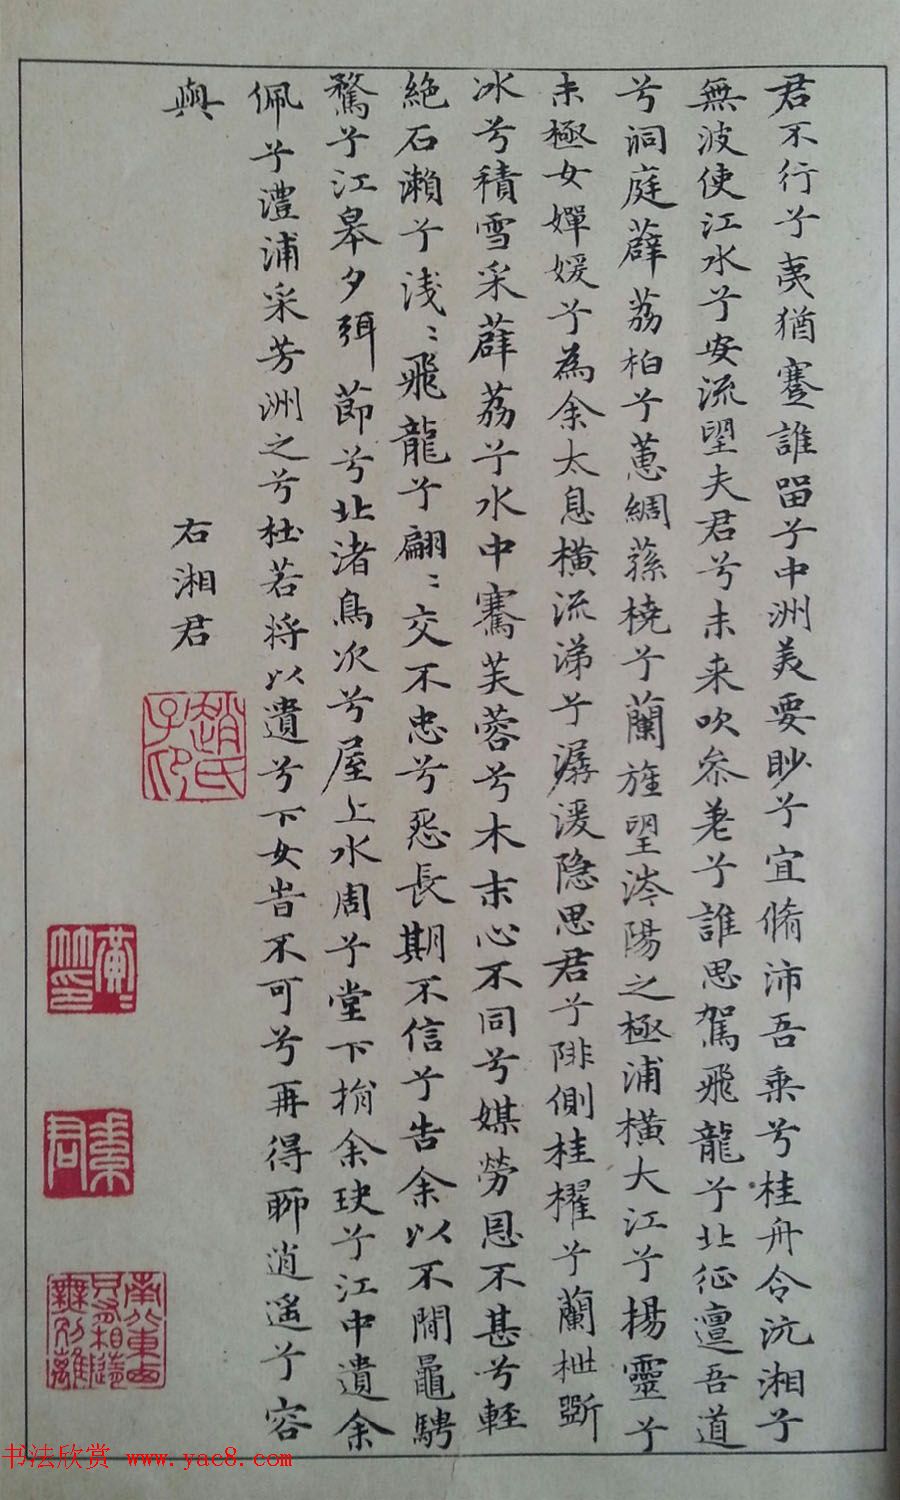 君不行兮夷猶蹇誰留兮中洲美要眇兮宜脩沛吾乗兮桂舟令沅湘兮
無波使江水兮安流望夫君兮未来吹参差兮誰思駕飛龍兮北征邅吾道
兮洞庭薜荔柏兮蕙綢蓀橈兮蘭旌望涔陽之極浦横大江兮揚靈兮
未極女嬋媛兮為余太息横流涕兮潺湲隐思君兮陫側桂櫂兮蘭枻斵
冰兮積雪采薜荔兮水中搴芙蓉兮木末心不同兮媒勞恩不甚兮軽
絶石瀨兮浅〻飛龍兮翩〻交不忠兮怨長期不信兮告余以不閒鼂騁
騖兮江皋夕弭節兮北渚鳥次兮屋上水周兮堂下捐余玦兮江中遺余
佩兮澧浦采芳洲之兮杜若将以遺兮下女旹不可兮再得聊逍遥兮容
與
右湘君
趙氏子印
書法欣赏 www.yac8.com